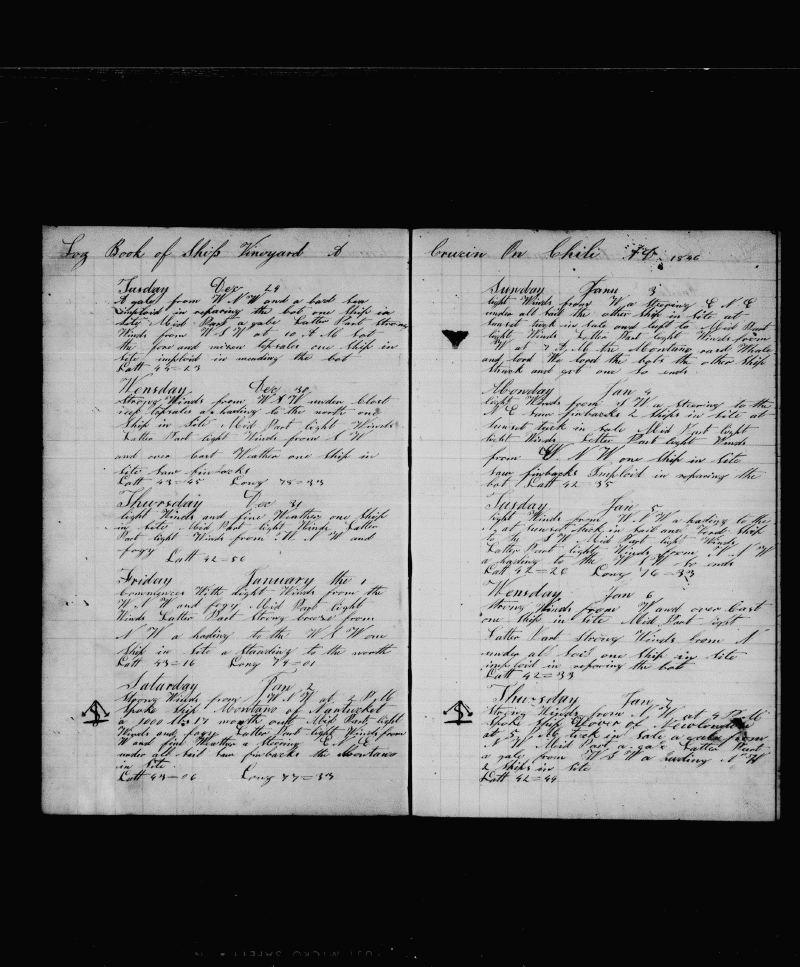 Log Book of Ship Vineyard A
Tusday Dec 29
A gale from W N W and a bad Sea
imploid in reparing the bot one Ship in
Site Mid Part a gale Latter Part Strong
Winds from W S W at 10 A M Sot
the fore and mizen topsales one Ship in
Site imploid in mending the bot
Latt 44=23
Wensday Dec 30
Strong Winds from W S W under Close
reef topsales a hading to the north one
Ship in Site Mid Part light Winds
Latter Part light Winds from S W
and over Cast Weather one Ship in
Site Saw finbacks
Latt 43=45 Long 78=33
Thursday Dec 31
light Winds and fine Weather one Ship
in Site Mid Part light Winds Latter
Part light Winds from W N W and
fogy
Latt 42=56
Friday January the 1
Commences With light Winds from the
W N W and fogy Mid Part light
Winds Latter Part Strong breze from
N W a hading to the W S W one
Ship in Site a Standing to the north
Latt 43=16 Long 79=01
Saturday Jan 2
Strong Winds from W N W at 2 P M
Spoke Ship Montano of Nantucket
a 1000 bls 17 month out Mid Part light
Winds and fogy Latter Part light Winds from
W and fine Weather a Stering E N E
under all Sail Saw finbacks the Montano
in Site
Latt 43=06 Long 77=33
Cruzin On Chili AD 1846
Sunday Janu 3
light Winds from W a Stering E N E
under all Sail the other Ship in Site at
Sunset tuck in Sale and luft to Mid Part
light Winds Latter Part light Winds from
W at A M the Montano rasd Whale
and lord We lord the bots the other Ship
Struck and got one So ends
Monday Jan 4
light Winds from S W a Stering to the
N E Saw finbacks 2 Ships in Site at
Sunset tuck in Sale Mid Part light
light Winds Latter Part light Winds
from W N W one Ship in Site
Saw finbacks Imploid in reparing the
bot Latt 42=35
Tusday Jan 5
light Winds from W N W a hading to the
N at Sunset tuck in Sail and Ship
to the S W Mid Part light Winds
Latter Part light Winds from N N W
a hading to the W S W So ends
Latt 42=26 Long 76=33
Wensday Jan 6
Strong Winds from W and over Cast
one Ship in Site Mid Part light
Latter Part Strong Winds from N
under all Sail one Ship in Site
imploid in reparing the bot
Latt 42=33
Thursday Jan 7
Strong Winds from N W at 4 P M
Spoke Ship Dover of Newlondon
at 5 P M tuck in Sale a gale from
N W Mid Part a gale Latter Part
a gale from W S W a hading N W
2 Ships in Site
Latt 42=44